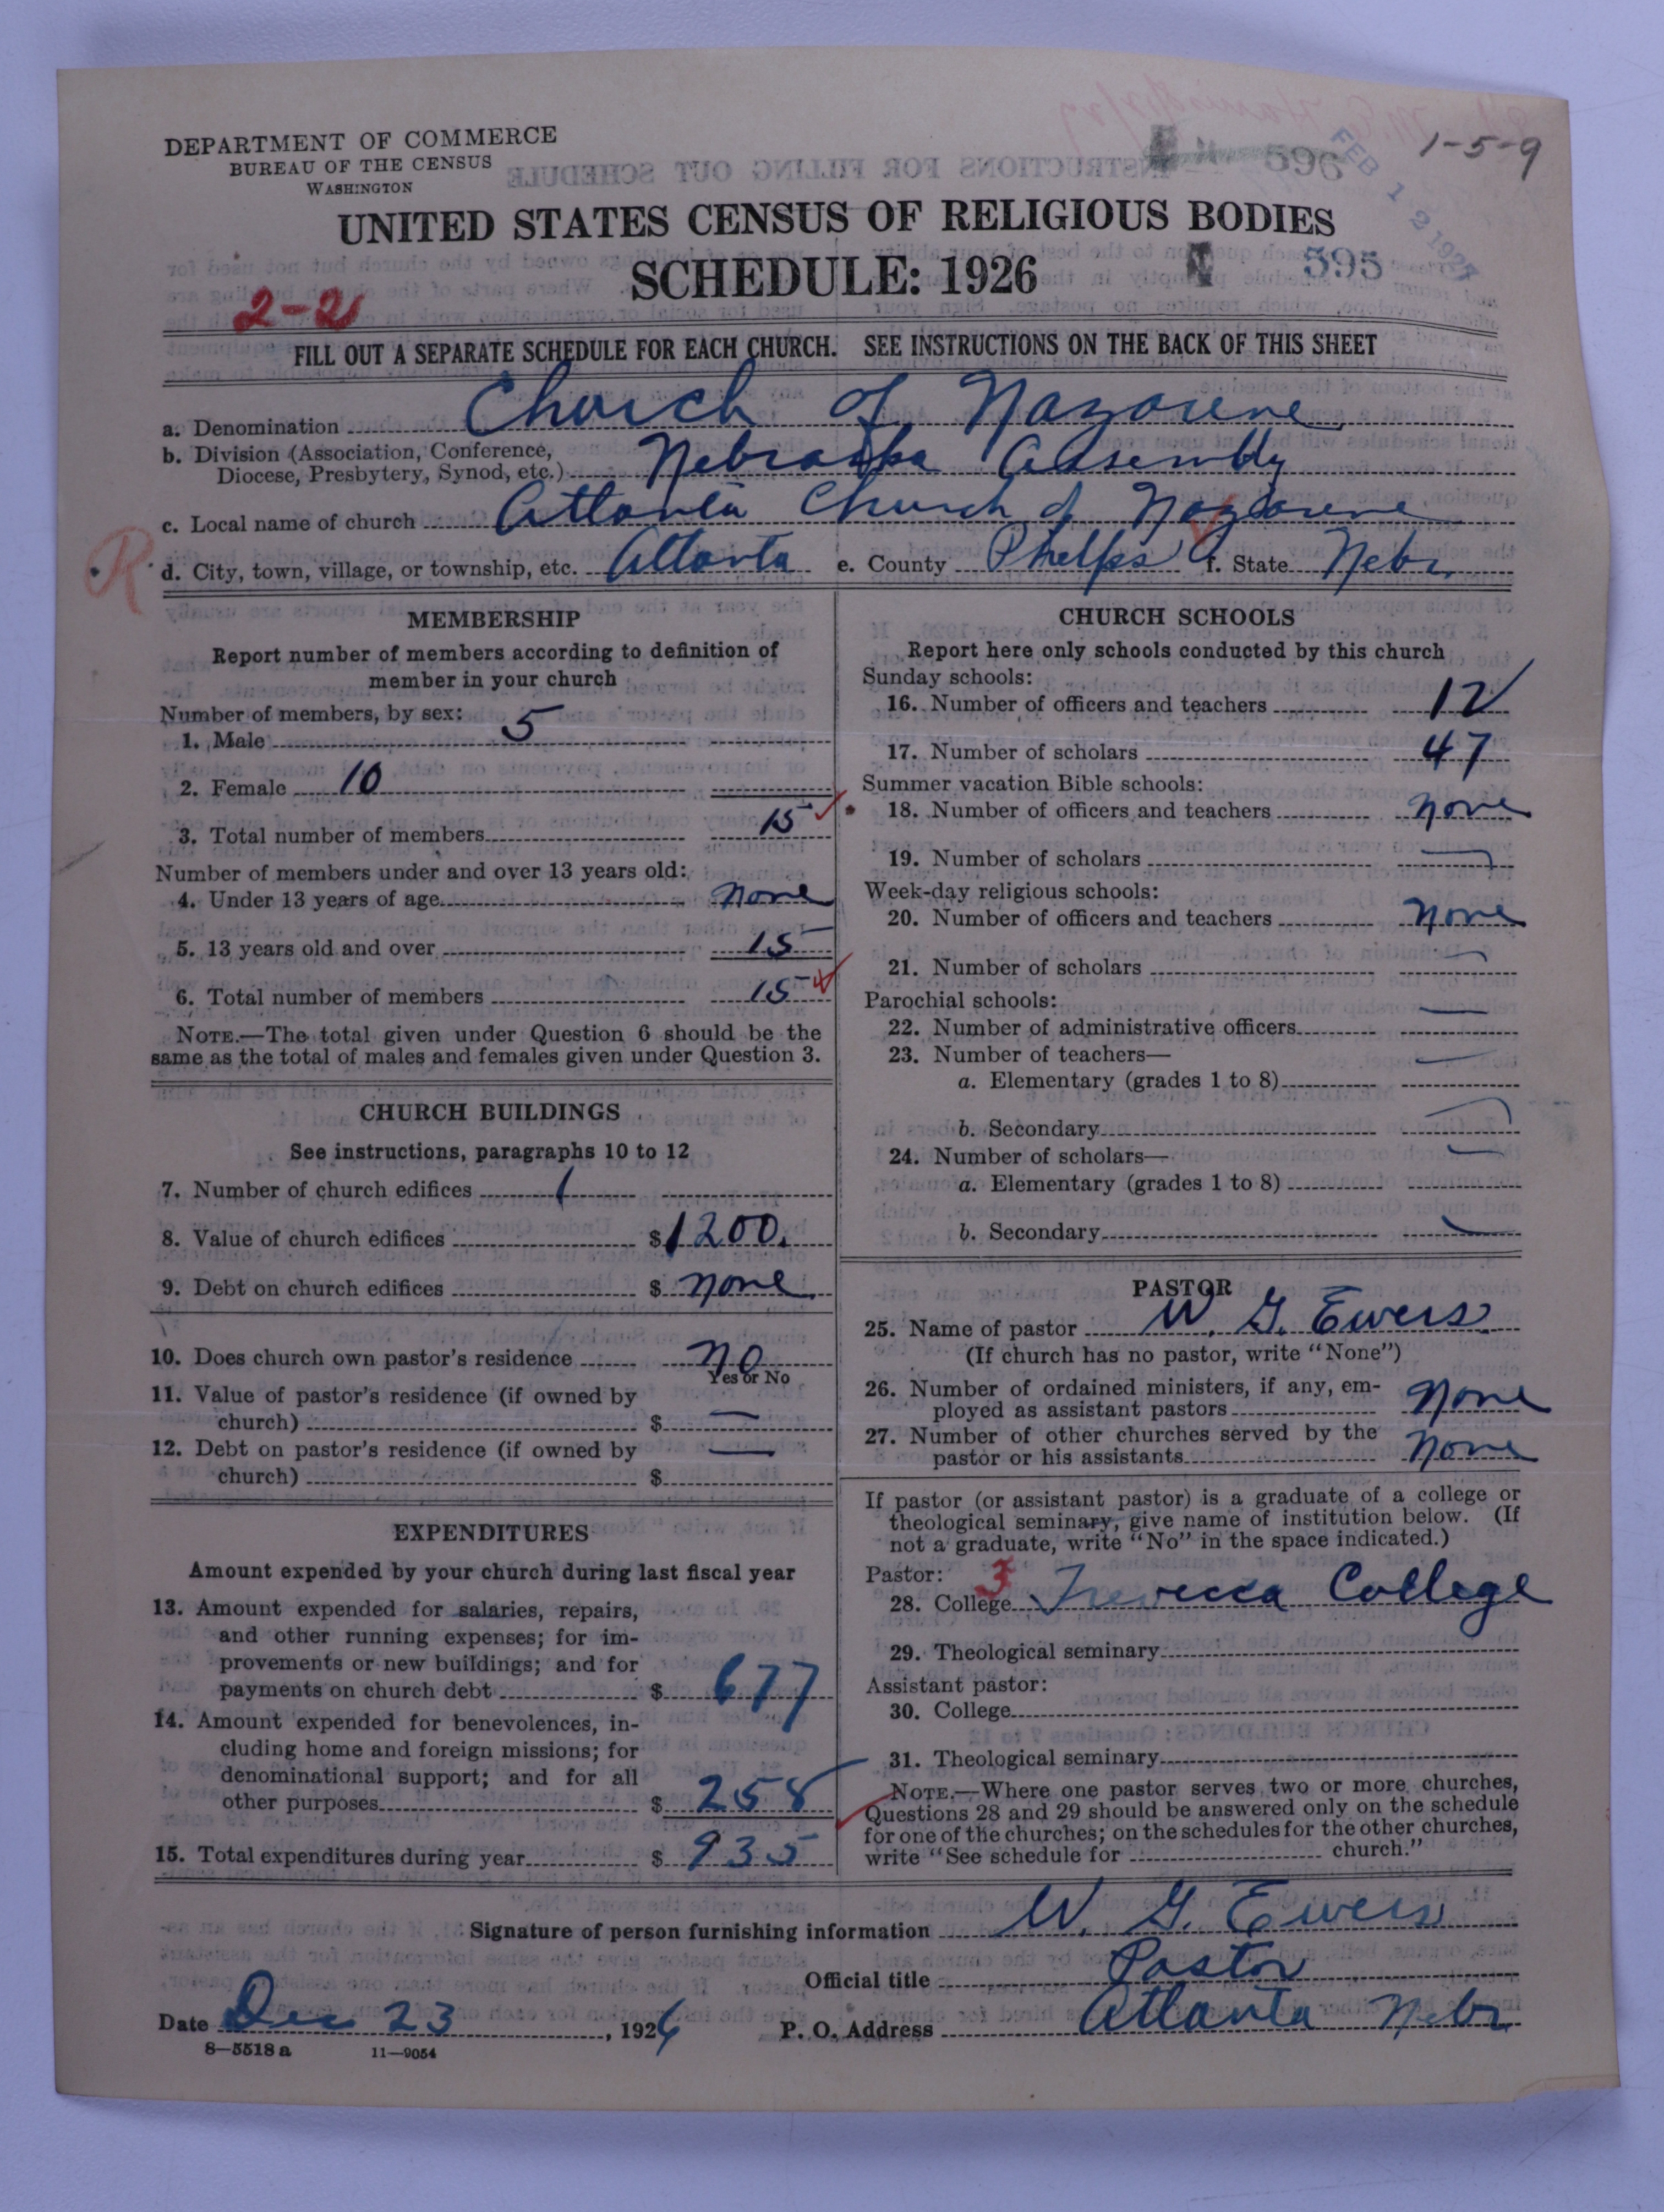 1-5-9
DEPARTMENT OF COMMERCE
BUREAU OF THE CENSUS
WASHINGTON
596
FEB 12 1927
UNITED STATES CENSUS OF RELIGIOUS BODIES
SCHEDULE: 1926
595
2-2
FILL OUT A SEPARATE SCHEDULE FOR EACH CHURCH. SEE INSTRUCTIONS ON THE BACK OF THIS SHEET
a. Denomination Church of Nazarene
b. Division (Association, Conference,
Diocese, Presbytery, Synod, etc.) Nebraska Assembly
c. Local name of church Atlanta Church of Nazarene
R
d. City, town, village, or township, etc. Atlanta e. County Phelps f. State Nebr.
MEMBERSHIP
Report number of members according to definition of
member in your church
Number of members, by sex:
1. Male 5
2. Female 10
3. Total number of members 15
Number of members under and over 13 years old:
4. Under 13 years of age None
5. 13 years old and over 15
6. Total number of members 15
NOTE.—The total given under Question 6 should be the
same as the total of males and females given under Question 3.
CHURCH BUILDINGS
See instructions, paragraphs 10 to 12
7. Number of church edifices 1
8. Value of church edifices $1200.
9. Debt on church edifices $ None
10. Does church own pastor's residence No
Yes or No
11. Value of pastor's residence (if owned by
church) $ —
12. Debt on pastor's residence (if owned by
church) $ —
EXPENDITURES
Amount expended by your church during last fiscal year
13. Amount expended for salaries, repairs,
and other running expenses; for im-
provements or new buildings; and for
payments on church debt $ 677
14. Amount expended for benevolences, in-
cluding home and foreign missions; for
denominational support; and for all
other purposes $ 258
15. Total expenditures during year $ 935
CHURCH SCHOOLS
Report here only schools conducted by this church
Sunday schools:
16. Number of officers and teachers 12
17. Number of scholars 47
Summer vacation Bible schools:
18. Number of officers and teachers None
19. Number of scholars —
Week-day religious schools:
20. Number of officers and teachers None
21. Number of scholars —
Parochial schools:
22. Number of administrative officers —
23. Number of teachers—
a. Elementary (grades 1 to 8) —
b. Secondary —
24. Number of scholars—
a. Elementary (grades 1 to 8) —
b. Secondary —
PASTOR
25. Name of pastor W. G. Ewers
(If church has no pastor, write "None")
26. Number of ordained ministers, if any, em-
ployed as assistant pastors None
27. Number of other churches served by the
pastor or his assistants None
If pastor (or assistant pastor) is a graduate of a college or
theological seminary, give name of institution below. (If
not a graduate, write "No" in the space indicated.)
Pastor: 3
28. College Trevecca College
29. Theological seminary
Assistant pastor:
30. College
31. Theological seminary
NOTE.—Where one pastor serves two or more churches,
Questions 28 and 29 should be answered only on the schedule
for one of the churches; on the schedules for the other churches,
write "See schedule for church."
Signature of person furnishing information W. G. Ewers
Official title Pastor
Date Dec 23, 1926 P. O. Address Atlanta Nebr
8—5518 a 11—9054